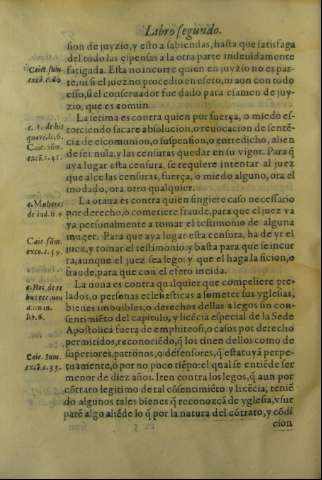 Libro segundo.
sion de juyzio, y esto a sabiendas, hasta que satisfaga
del todo las espensas a la otra parte indeuidamente
fatigada. Esta no incurre quien en juyzio no es par-
te, ni si el juez no procedio en efeto, ni aun con todo
esso, si el conseruador fue dado para examen de juy-
zio, que es comun.
La setima es contra quien por fuerça, o miedo es-
torciendo sacare absolucion, o reuocacion de sentē-
cia de excomunion, o suspension, o entredicho, alien
de ser nula, y las censuras quedar en su vigor. Para q̄
aya lugar esta censura, se requiere intentar al juez
que alce las censuras, fuerça, o miedo alguno, ora el
modado, ora otro qualquier.
La otaua es contra quien fingiere caso necessario
por derecho, o cometiere fraude, para que el juez va
ya personalmente a tomar el testimonio de alguna
muger. Para que aya lugar esta censura, ha de yr el
juez, y tomar el testimonio: y basta para que se incur
ra, aunque el juez sea lego: y que el haga la ficion, o
fraude, para que con el efeto incida.
La nona es contra qualquier que compeliere pre-
lados, o personas eclesiasticas a someter sus yglesias,
bienes imobiles, o derechos dellas a legos sin con-
sentimiēto del capitulo, y licēcia especial de la Sede
Apostolica fuera de emphiteosi, o casos por derecho
permitidos, reconociēdo, q̄ los tinen dellos como de
superiores, patronos, o defensores, q̄ estatuyā perpe-
tuamente, o por no poco tiēpo: el qual se entiēde ser
menor de diez años. Iten contra los legos, q̄ aun por
cōtrato legitimo de tal cōsentimiēto y licēcia, teniē
do algunos tales bienes q̄ reconozcā de yglesia, vsur
parē algo aliēde lo q̄ por la natura del cōtrato, y cōdi
cion
Caiet. sum.
exco. c.
Caie. sum.
exco. c. 59.
Caie. sum.
exco. c. 35.